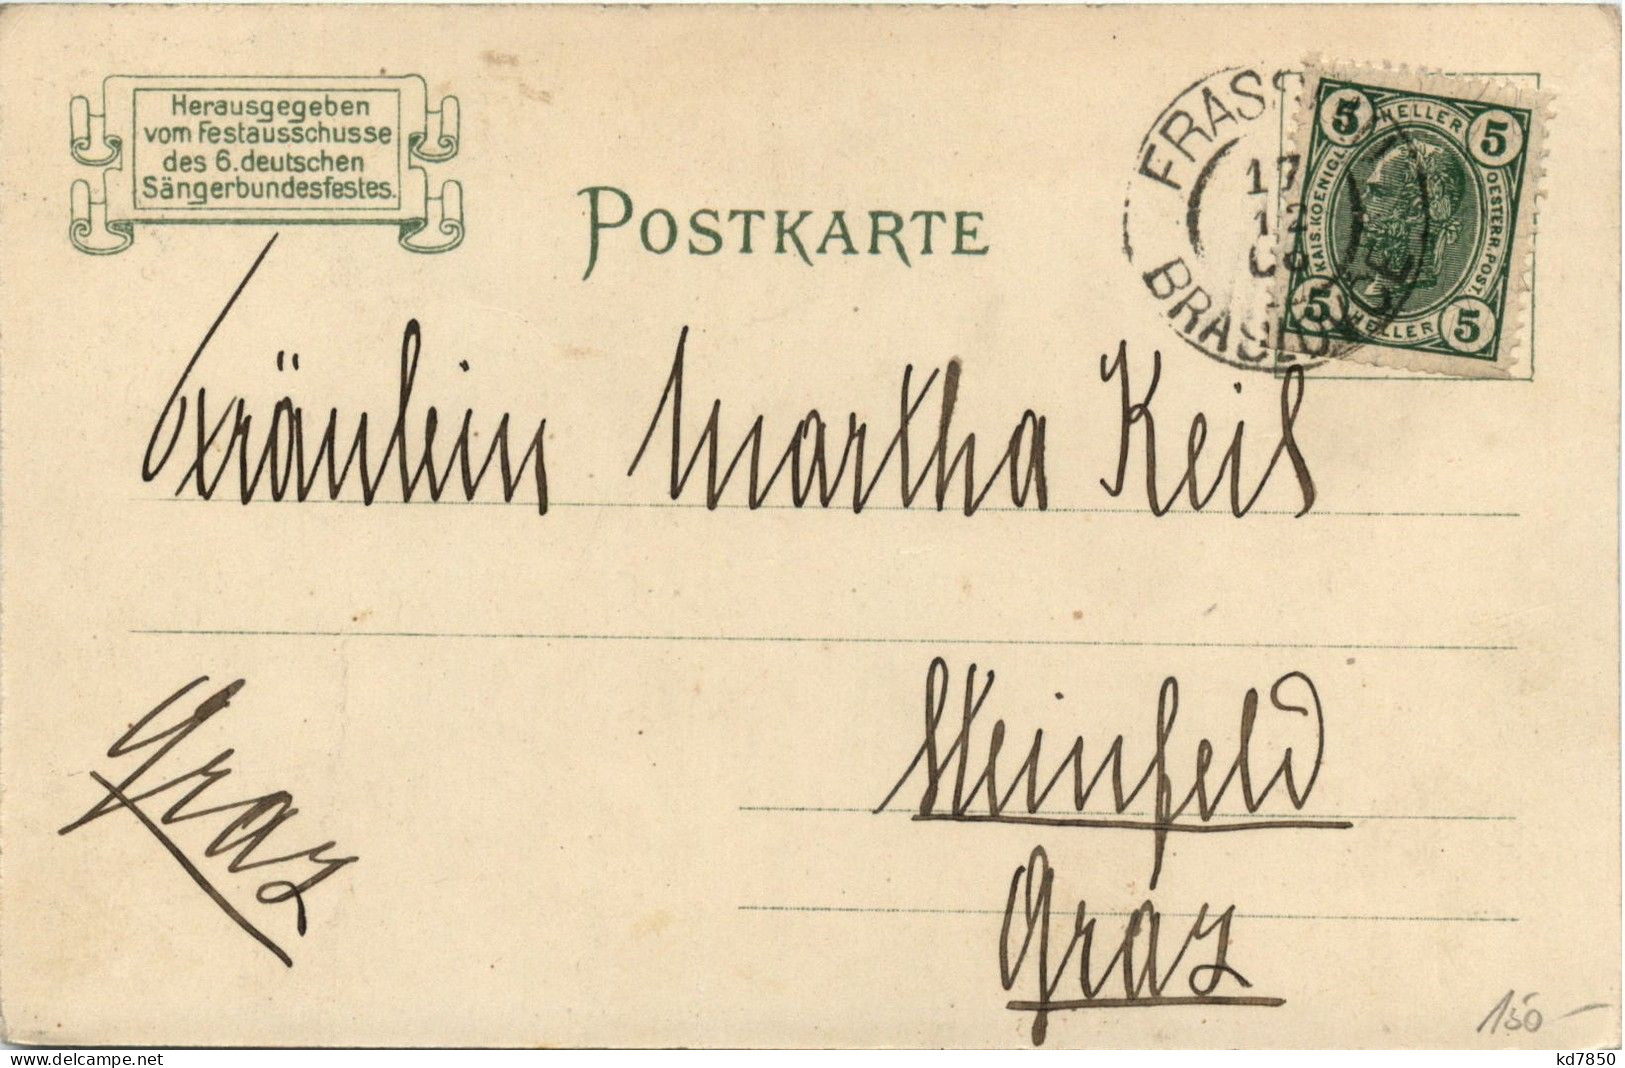 Herausgegeben
vom Festausschusse
des 6. deutschen
Sängerbundesfestes.
POSTKARTE
17
12
BRASLOVČE
5 HELLER 5
KAIS. KOENIGL. OESTERR. POST.
5 HELLER 5
Fräulein Martha Keil
Steinfeld
Graz
Graz
150 –
kd7850